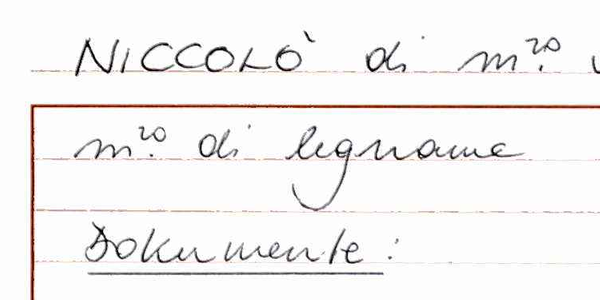 NICCOLÒ di m.ʳᵒ
m.ʳᵒ di legname
Dokumente: